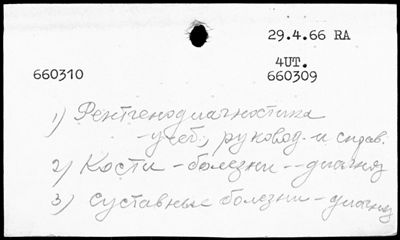 29.4.66 RA
4UT.
660310
660309
1) Рентгенодиагностика
-учеб., руковод. и справ.
2) Кости - болезни - диагноз
3) Суставные болезни - диагноз